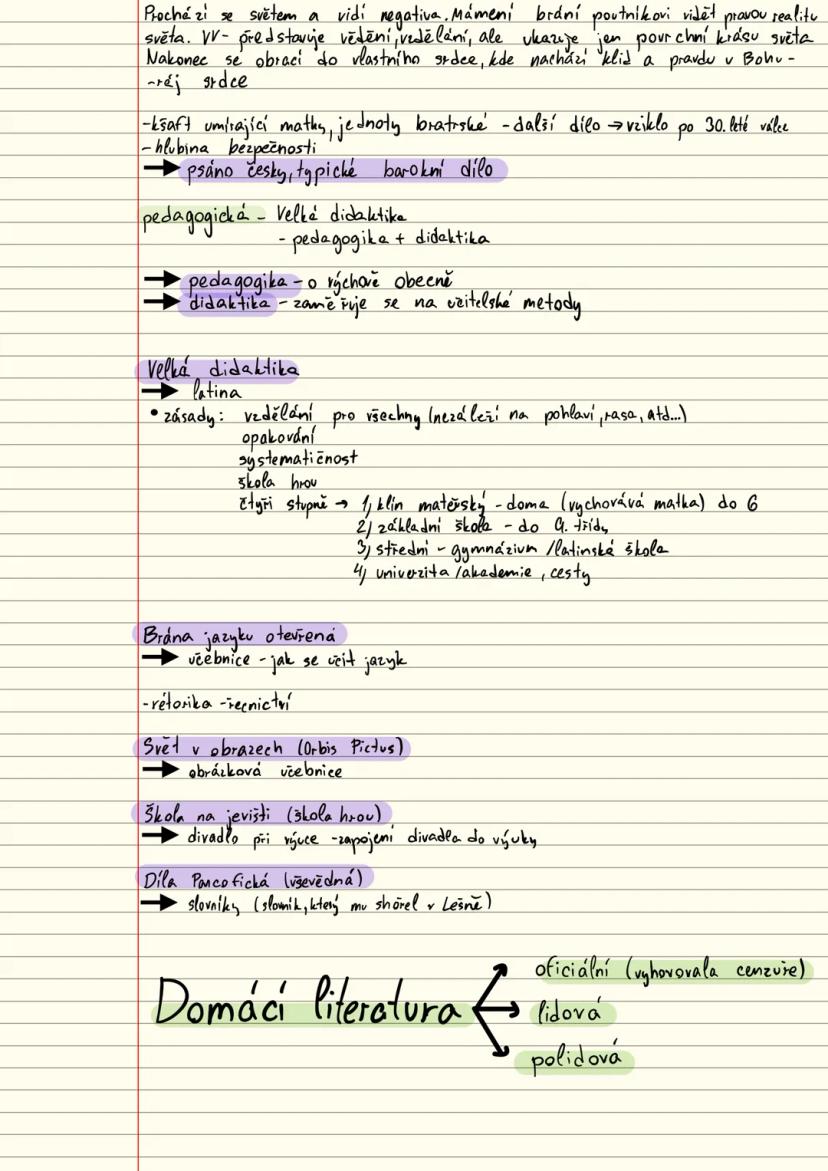 Prochází se světem a vidí negativa. Mámení brání poutníkovi vidět pravou realitu
světa. VV- představuje vědění, vzdělání, ale ukazuje jen povrchní krásu světa
Nakonec se obrací do vlastního srdce, kde nachází klid a pravdu v Bohu-
-ráj srdce
-kšaft umírající matky, jednoty bratrské - další dílo → vziklo po 30.leté válce
- hlubina bezpečnosti
→ psáno česky, typické barokní dílo
pedagogická - Velká didaktika
- pedagogika + didaktika
→ pedagogika - o výchově obecně
→ didaktika - zaměřuje se na učitelské metody
Velká didaktika
→ latina
• zásady: vzdělání pro všechny (nezáleží na pohlaví, rasa, atd...)
opakování
systematičnost
škola hrou
čtyři stupně → 1) klín mateřský - doma (vychovává matka) do 6
2) základní škola - do 9. třídy
3) střední - gymnázium /latinská škola
4) univerzita /akademie, cesty
Brána jazyku otevřená
→ učebnice - jak se učit jazyk
-rétorika -řečnictví
Svět v obrazech (Orbis Pictus)
→ obrázková učebnice
Škola na jevišti (škola hrou)
→ divadlo při výuce -zapojení divadla do výuky
Díla Pancofická (vševědná)
→ slovníky (slovník, který mu shořel v Lešně)
Domácí literatura
oficiální (vyhovovala cenzuře)
lidová
polidová